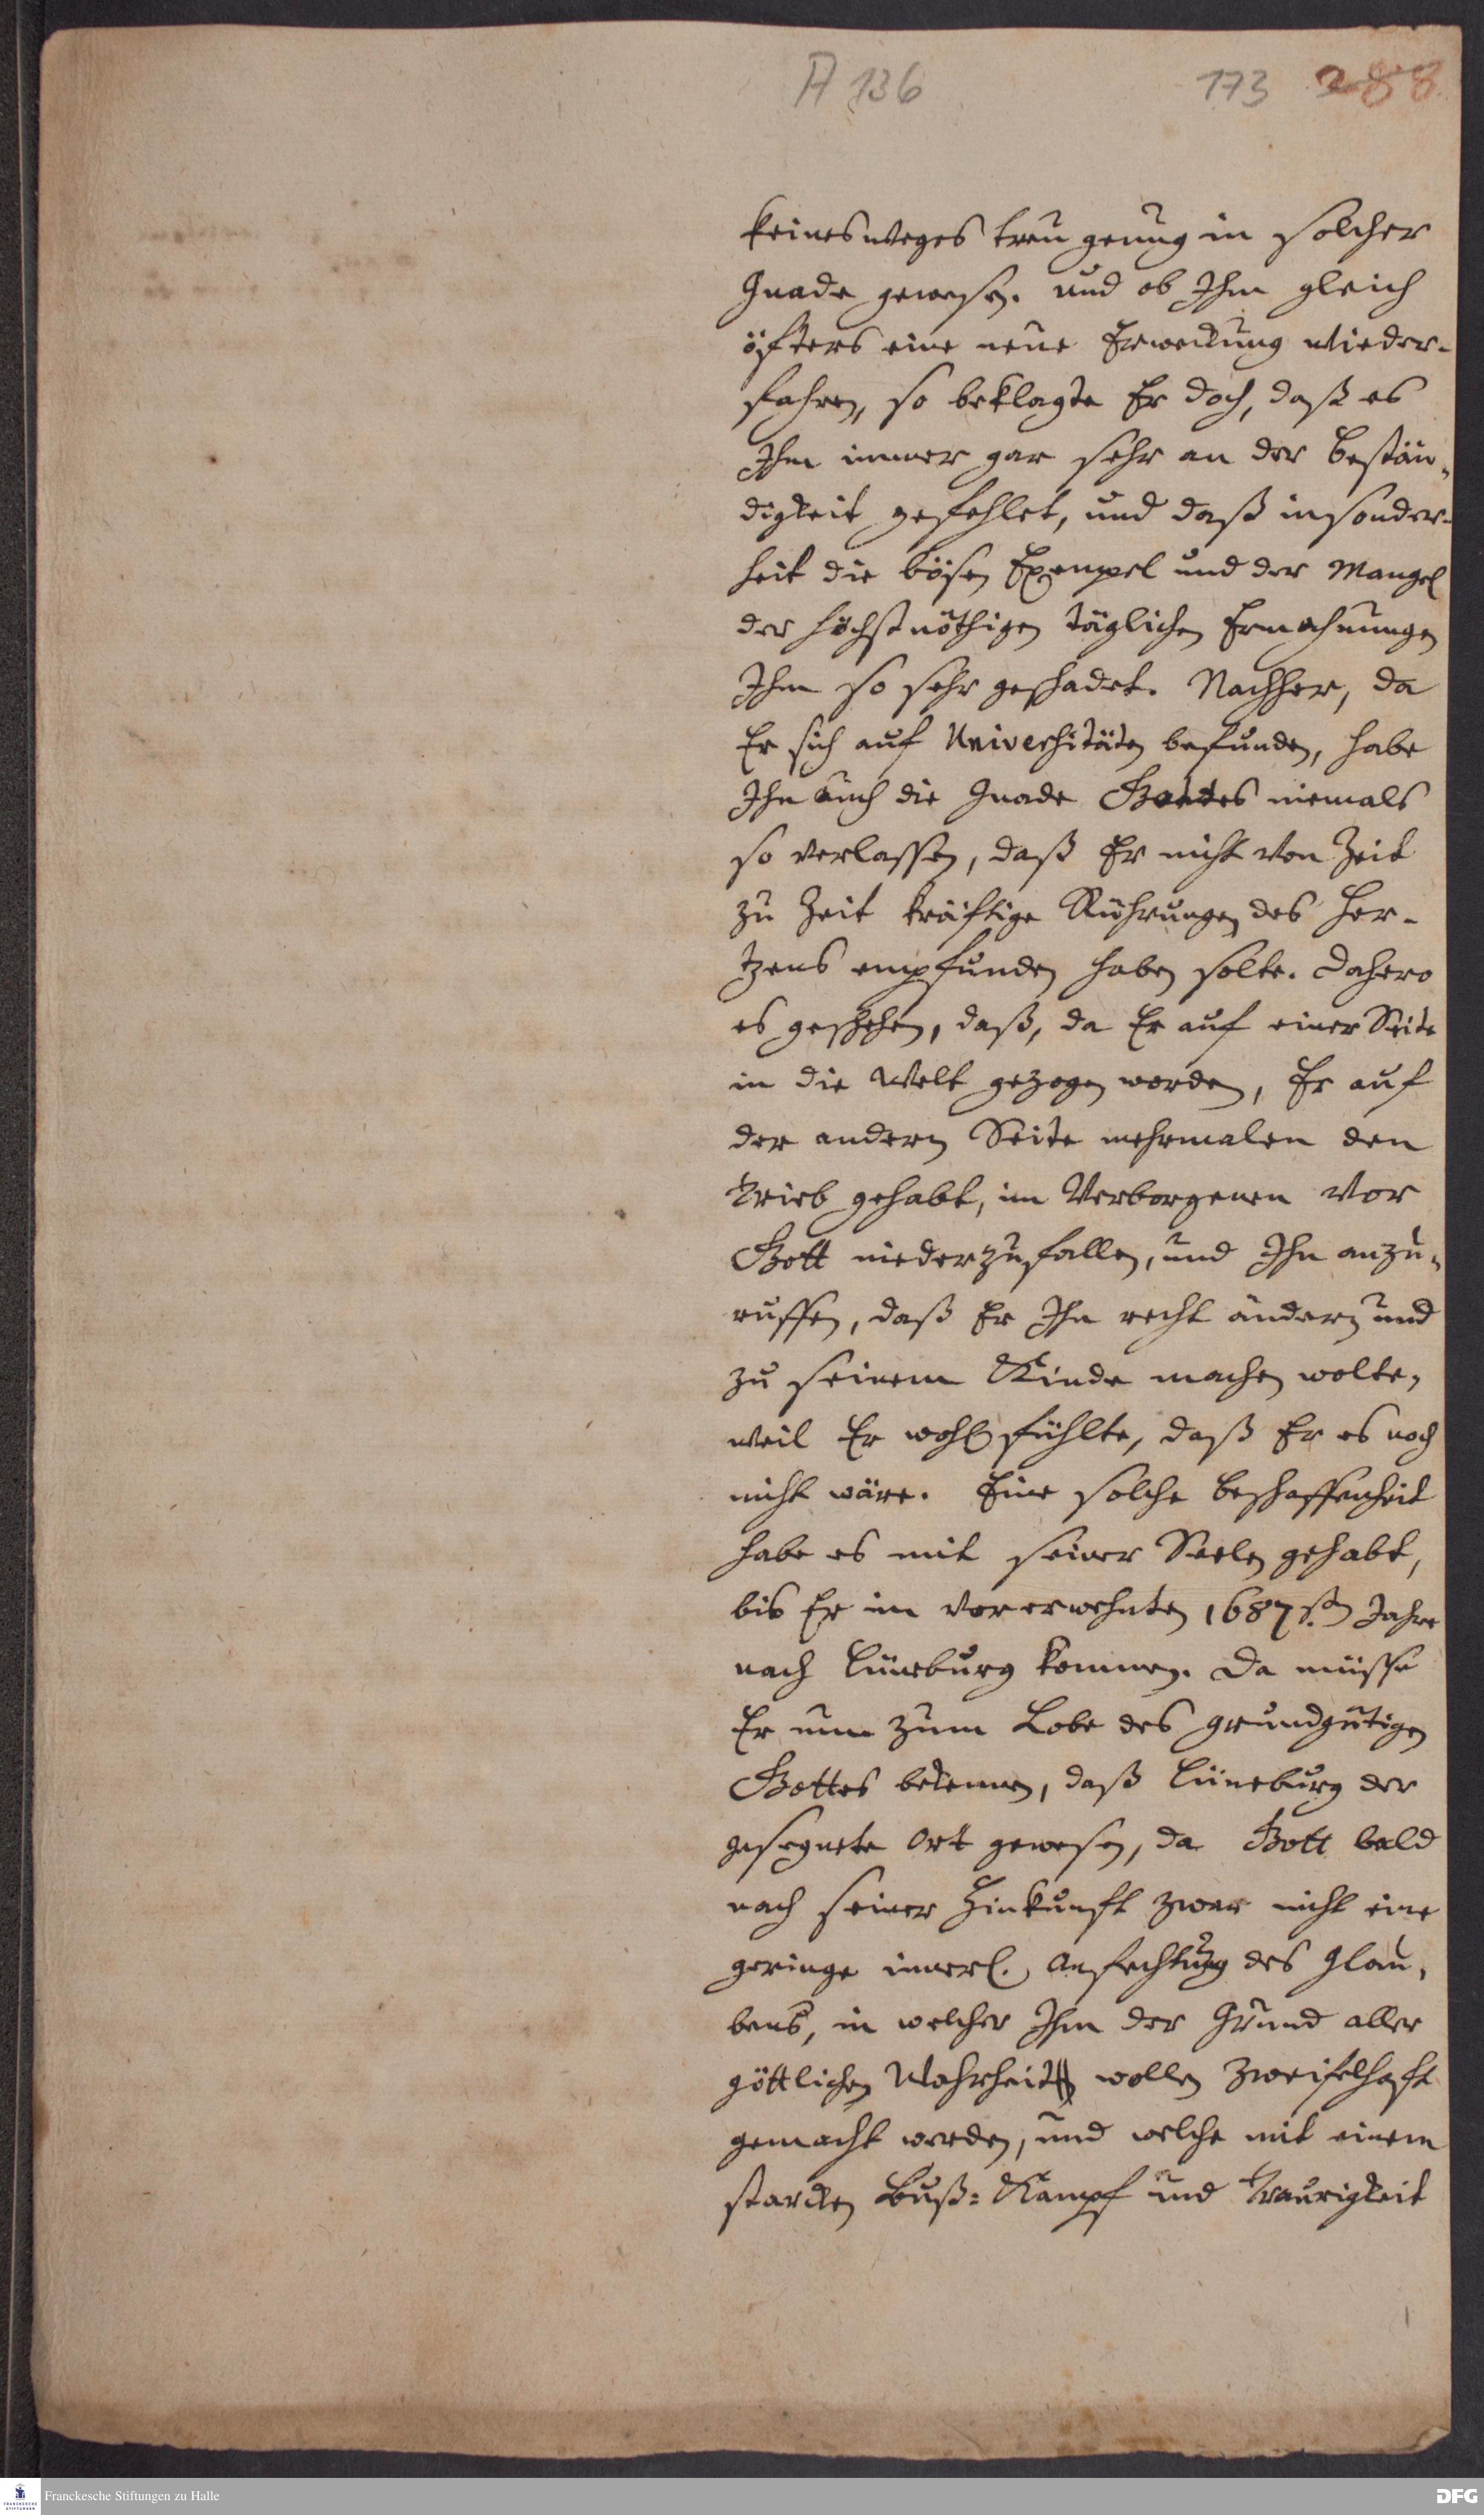 A 136 173 288
keinesweges treu genug in solcher
Gnade gewesen. und ob Ihm gleich
öffters eine neue Erweckung wieder-
fahren, so beklagte Er doch, daß es
Ihm immer gar sehr an der Bestän-
digkeit gefehlet, und daß insonder-
heit die bösen Exempel und der Mangel
der höchstnöthigen täglichen Ermahnungen
Ihm so sehr geschadet. Nachher, da
Er sich auf Universitäten befunden, habe
Ihn auch die Gnade Gottes niemals
so verlassen, daß Er nicht von Zeit
zu Zeit kräftige Rührungen des Her-
tzens empfunden haben solte. Dahero
es geschehen, daß, da Er auf einer Seite
in die Welt gezogen worden, Er auf
der andern Seite mehrmalen den
Trieb gehabt, im Verborgenen vor
Gott niederzufallen, und Ihn anzu-
ruffen, daß Er Ihn recht ändern und
zu seinem Kinde machen wolte,
weil Er wohl fühlte, daß Er es noch
nicht wäre. Eine solche Beschaffenheit
habe es mit seiner Seelen gehabt,
bis Er im vorerwehnten 1687.st. Jahre
nach Lüneburg kommen. Da müsse
Er nun zum Lobe des grundgütigen
Gottes bekennen, daß Lüneburg der
gesegnete Ort gewesen, da Gott bald
nach seiner Hinkunft zwar nicht eine
geringe innerl. Anfechtung des Glau-
bens, in welcher Ihm der Grund aller
göttlichen Wahrheit wollen zweifelhaft
gemacht werden, und welche mit einem
starcken Buß-Kampf und Traurigkeit
Franckesche Stiftungen zu Halle
DFG